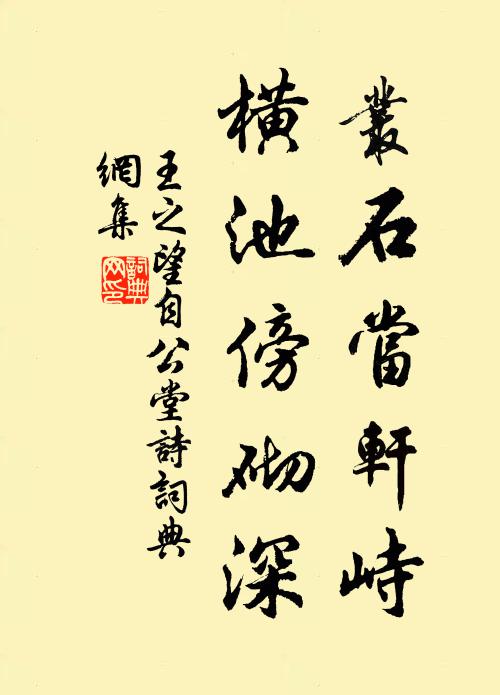 叢石當軒峙
橫池傍砌深
王之望自公堂詩詞典
網集
詞典網印